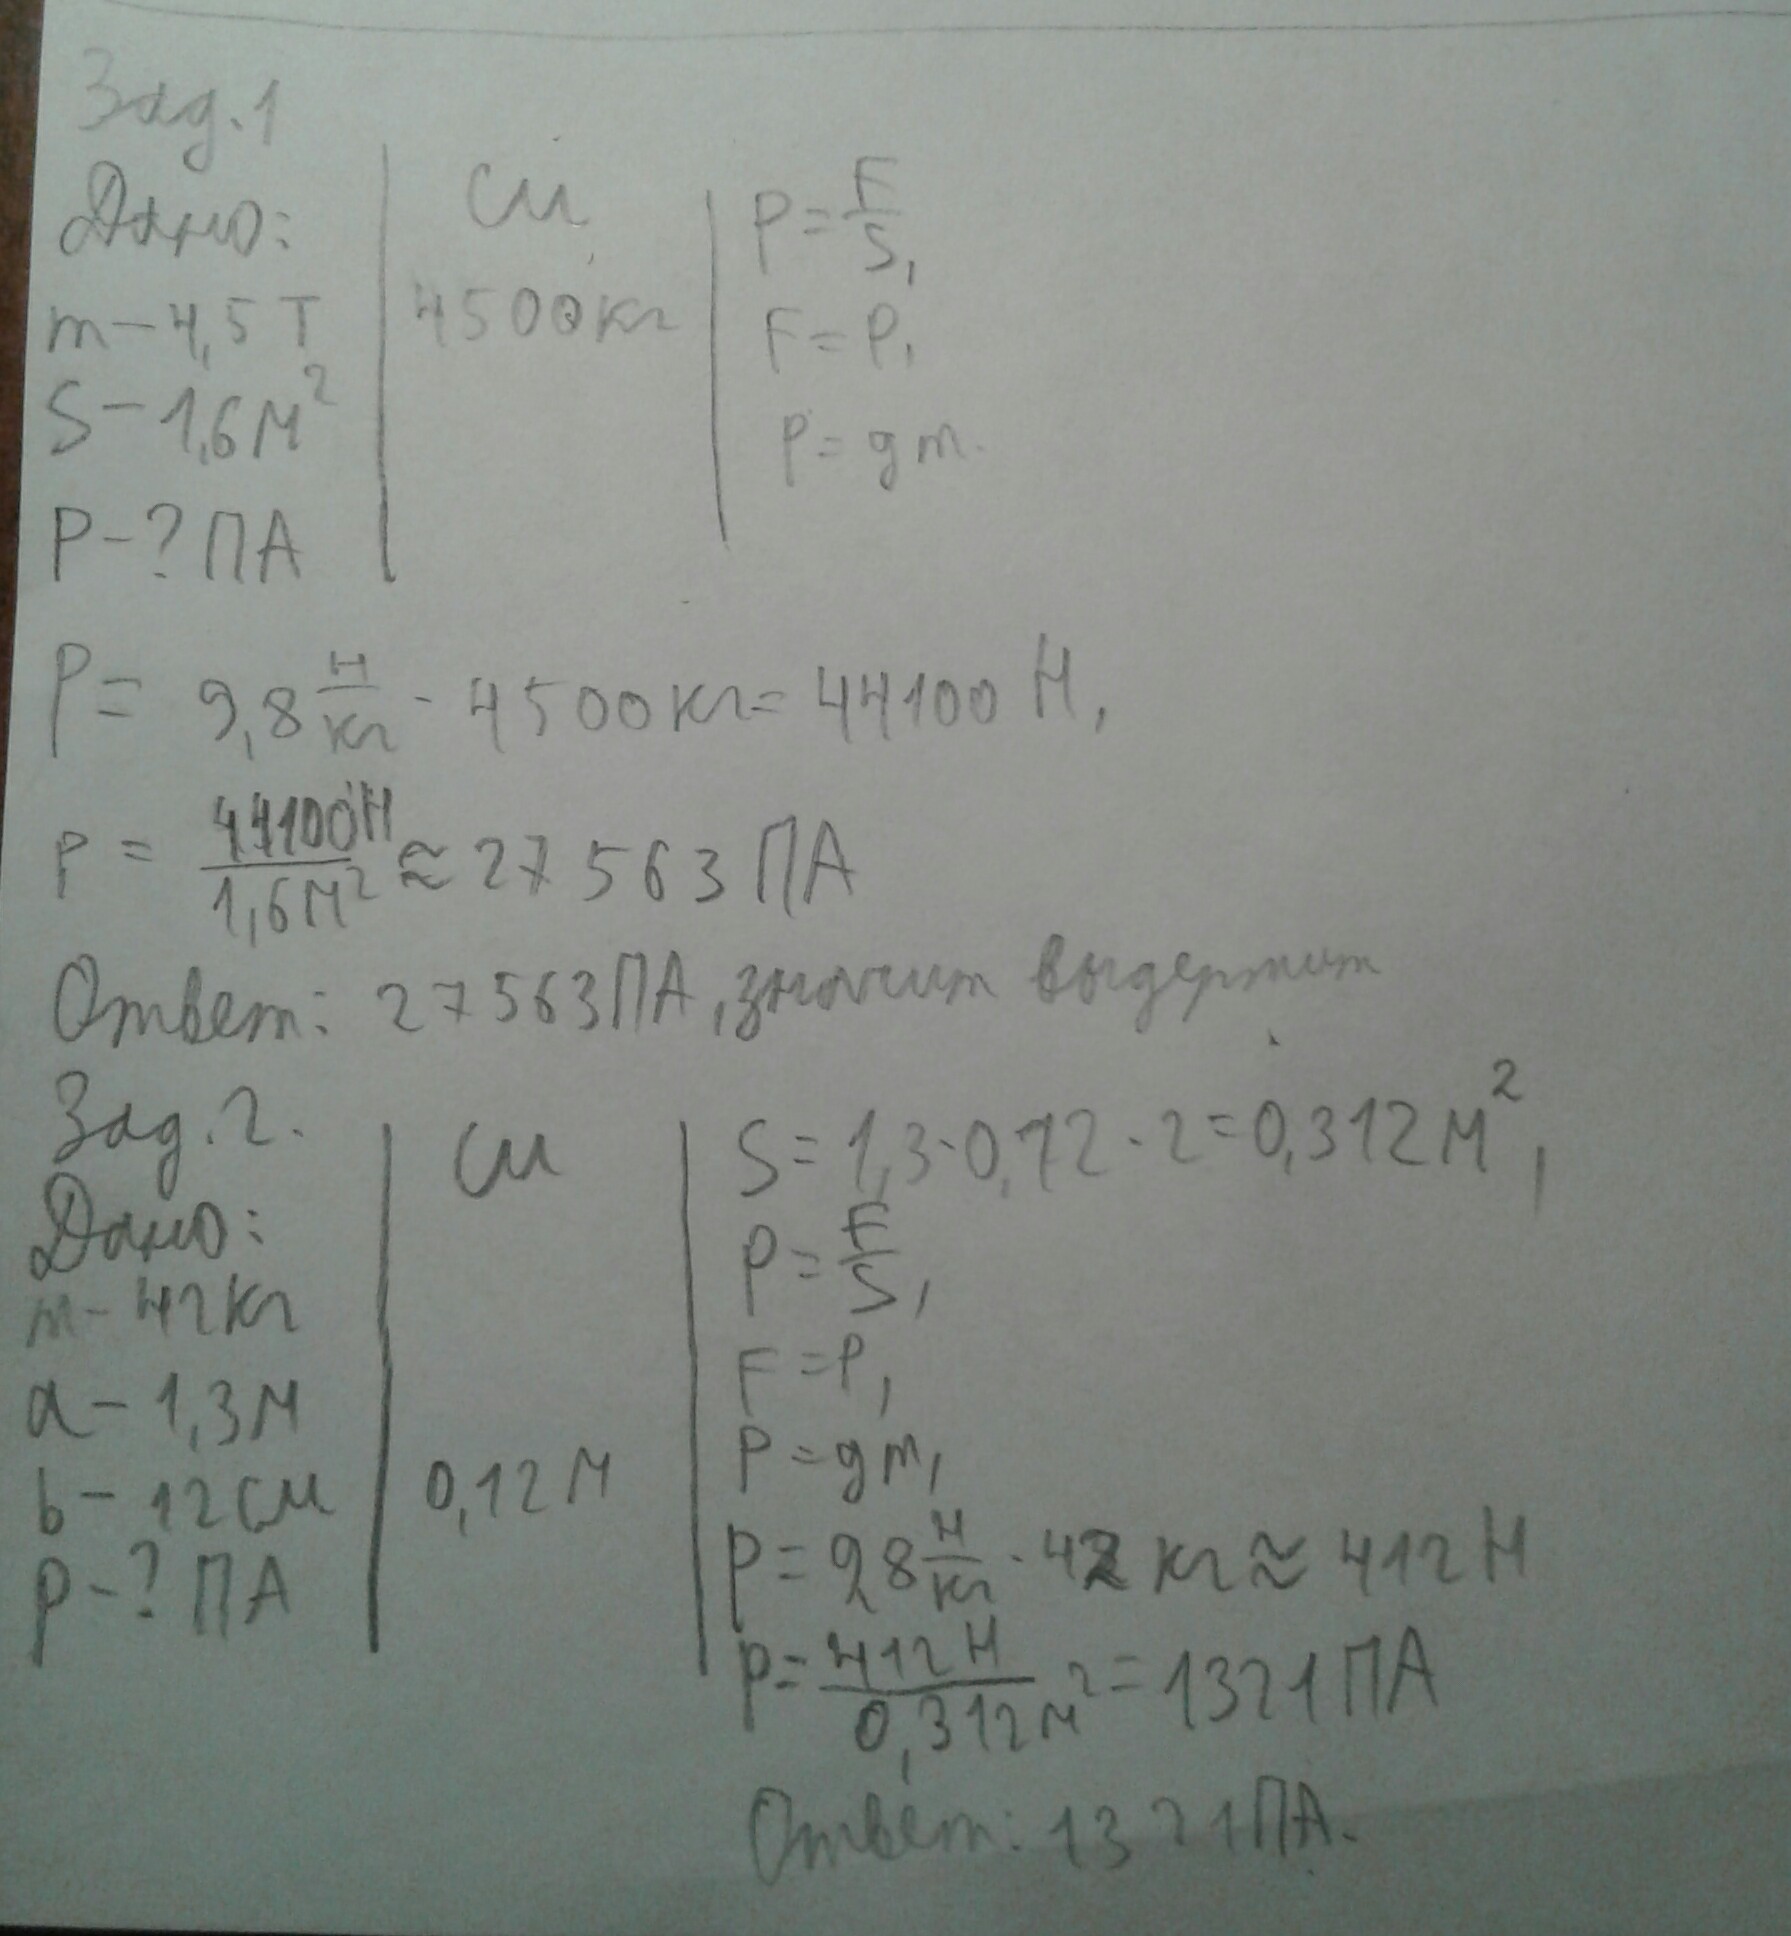 Зад. 1
Дано:
m - 4,5 Т
S - 1,6 М²
P - ? ПА
СИ
4500 кг
P = F/S,
F = P,
P = gm.
P = 9,8 Н/кг · 4500 кг = 44100 Н,
P = 44100Н/1,6 М² ≈ 27 563 ПА
Ответ: 27563 ПА, значит выдержит
Зад. 2.
Дано:
m - 42 кг
a - 1,3 М
b - 12 см
P - ? ПА
СИ
0,12 М
S = 1,3 · 0,12 · 2 = 0,312 М²,
P = F/S,
F = P,
P = gm,
P = 9 8 Н/кг · 42 кг ≈ 412 Н
P = 412 Н/0,312 м² = 1321 ПА
Ответ: 1321 ПА.